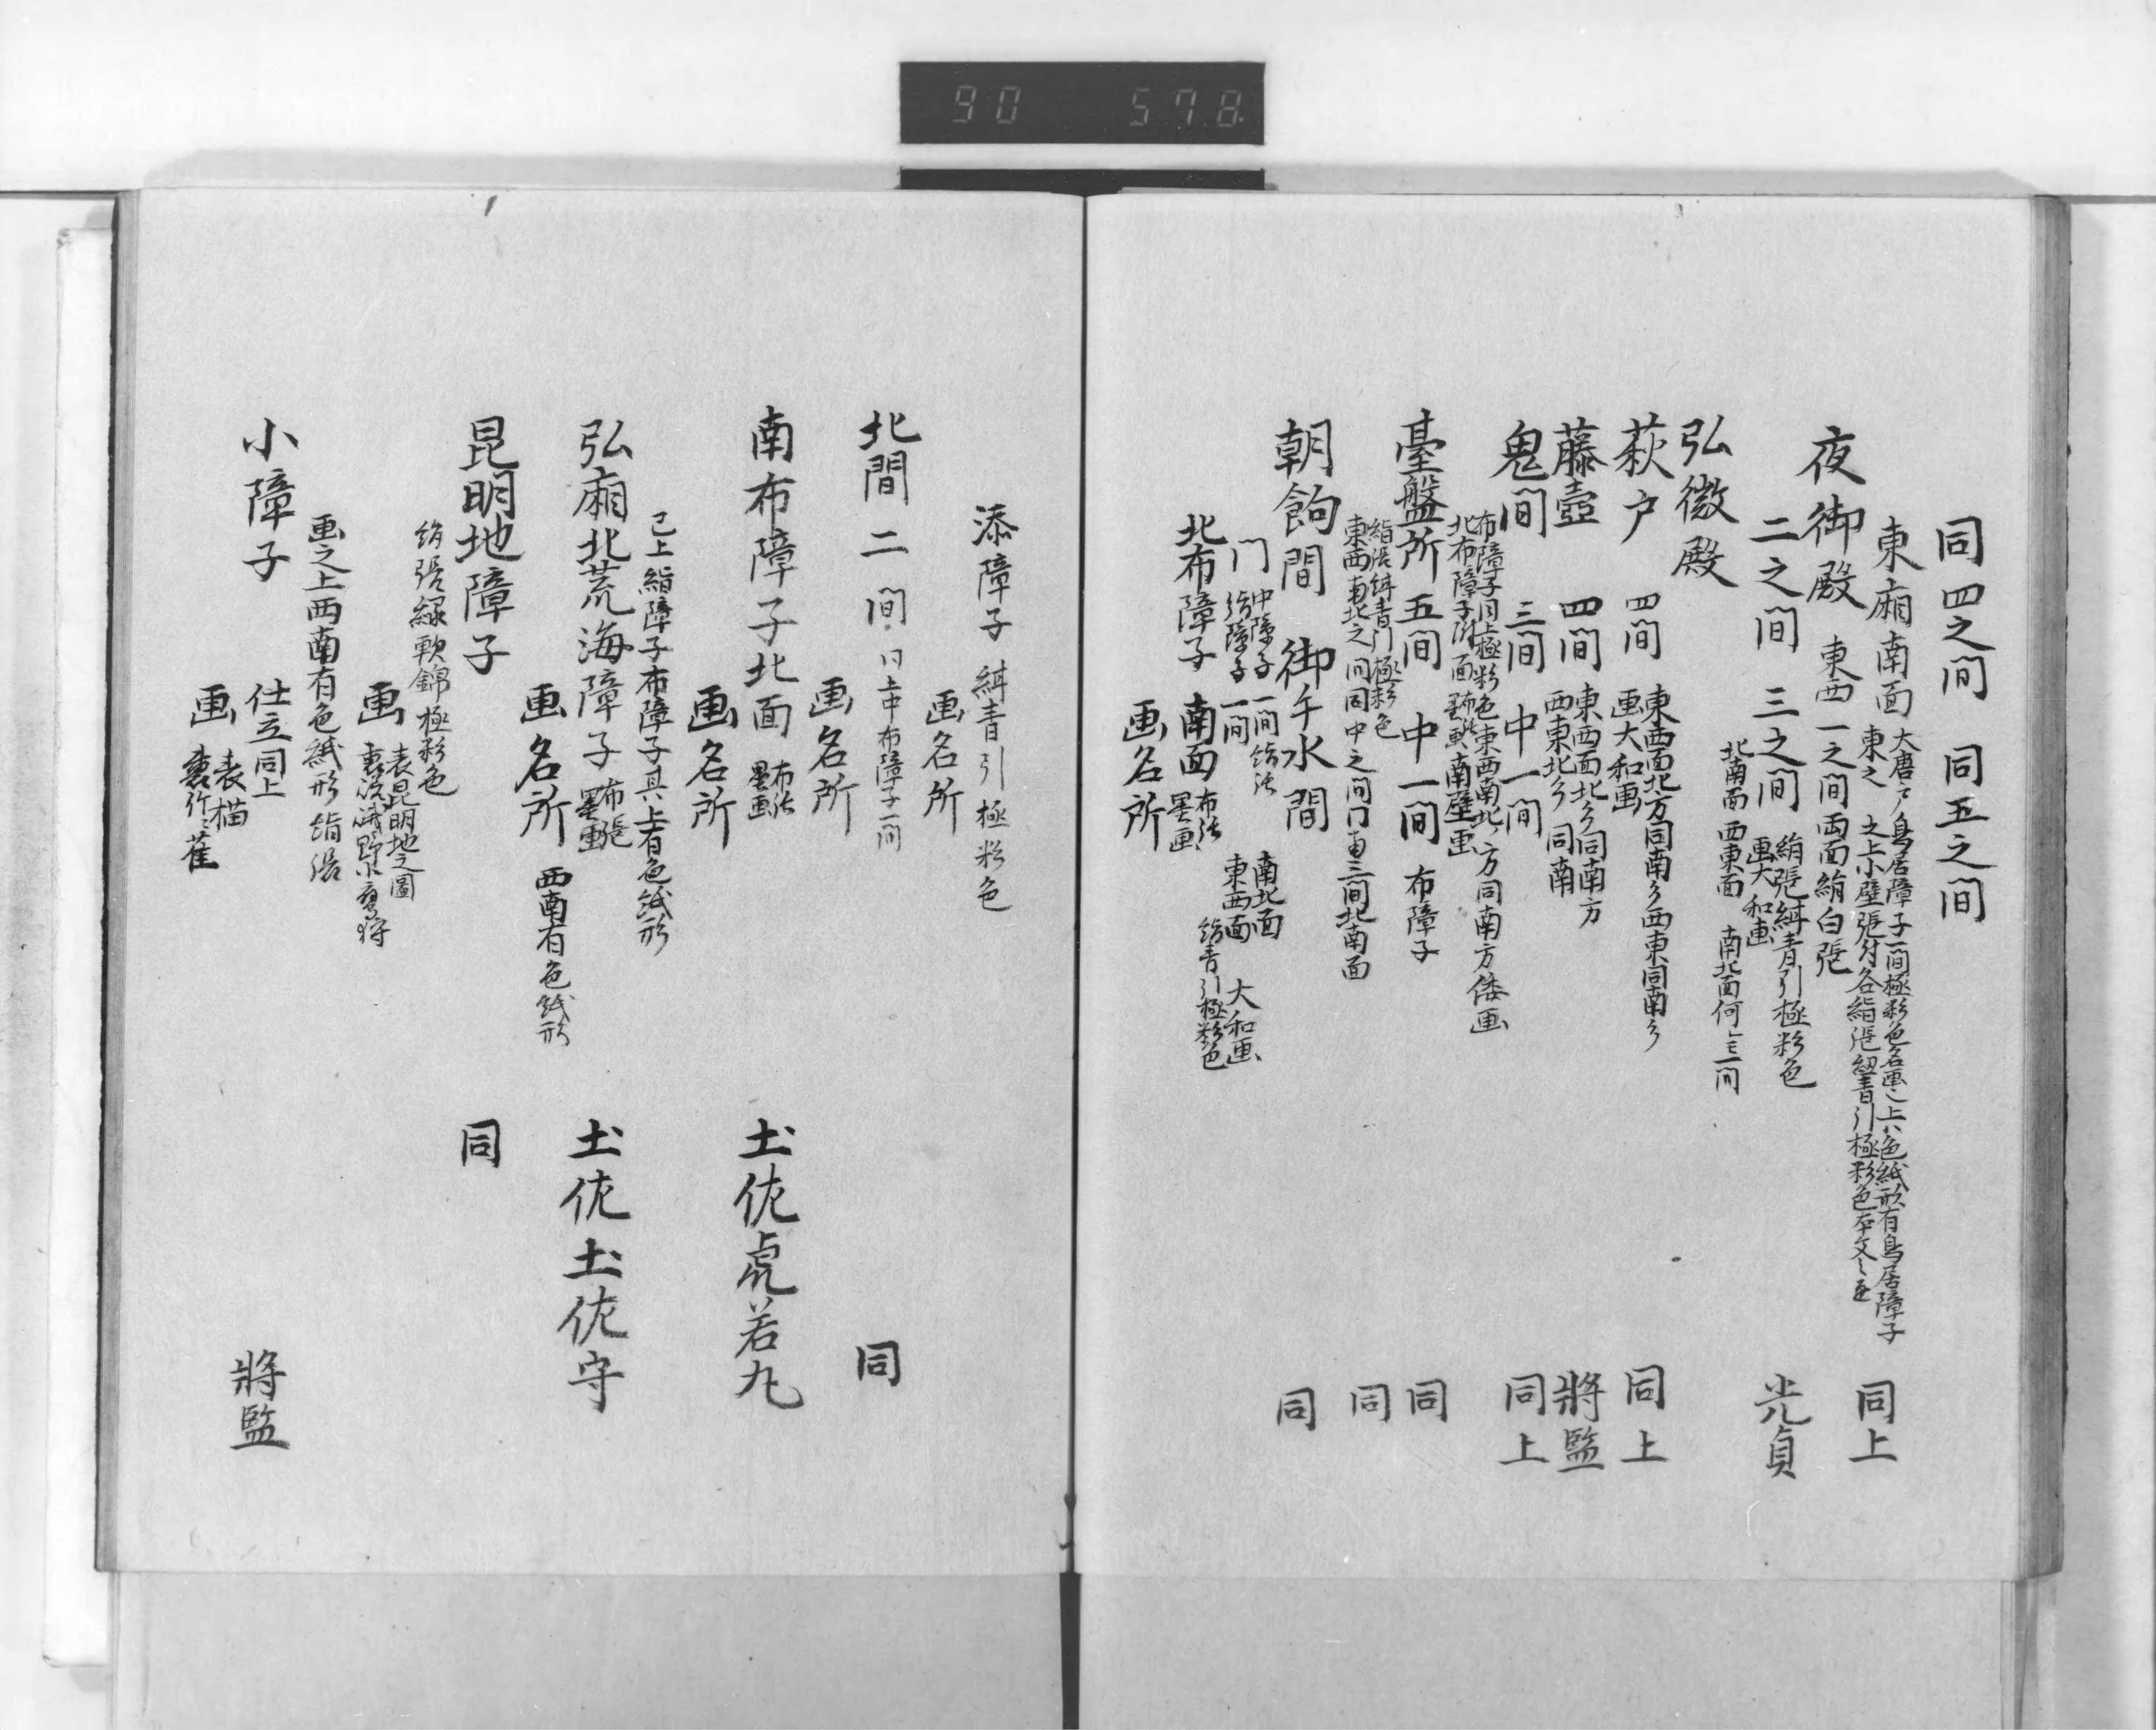 90 578
同四之間 同五之間
東廂南面
東之
夜御殿 東西一之間両面絹白張 同上
二之間 三之間 絹張 青引極彩色
画大和画 光貞
北南面 西東面 南北面何上一間
弘徽殿
萩戸 四間 東西面北方同南方西東同南方
画大和画 同上
藤壺 四間 東西面北方同南方
西東北方同南 將監
鬼間 三間 中一間 同上
布障子同上極彩色東西南北方同南方倭画
臺盤所 五間 中一間 布障子 同
東西南北之間同中之間門南三間北南面 同
朝餉間 御手水間 同
門 中障子一間
南北面
東西面 大和画
青引極彩色
北布障子 南面 布張
墨画
画名所
漆障子 青引極彩色
画名所
北間二間 同上中布障子一間 同
画名所
南布障子北面 布張
墨画 土佐虎若丸
画名所
已上絹障子布障子具上有色紙形
弘廂北荒海障子 布張
墨画 土佐土佐守
画名所 西南有色紙形
昆明地障子 同
絹張緑軟錦極彩色
画 表昆明地之圖
裏嵯峨野小鷹狩
画之上西南有色紙形絹張
小障子 仕立同上 將監
画 表猫
裏竹雀